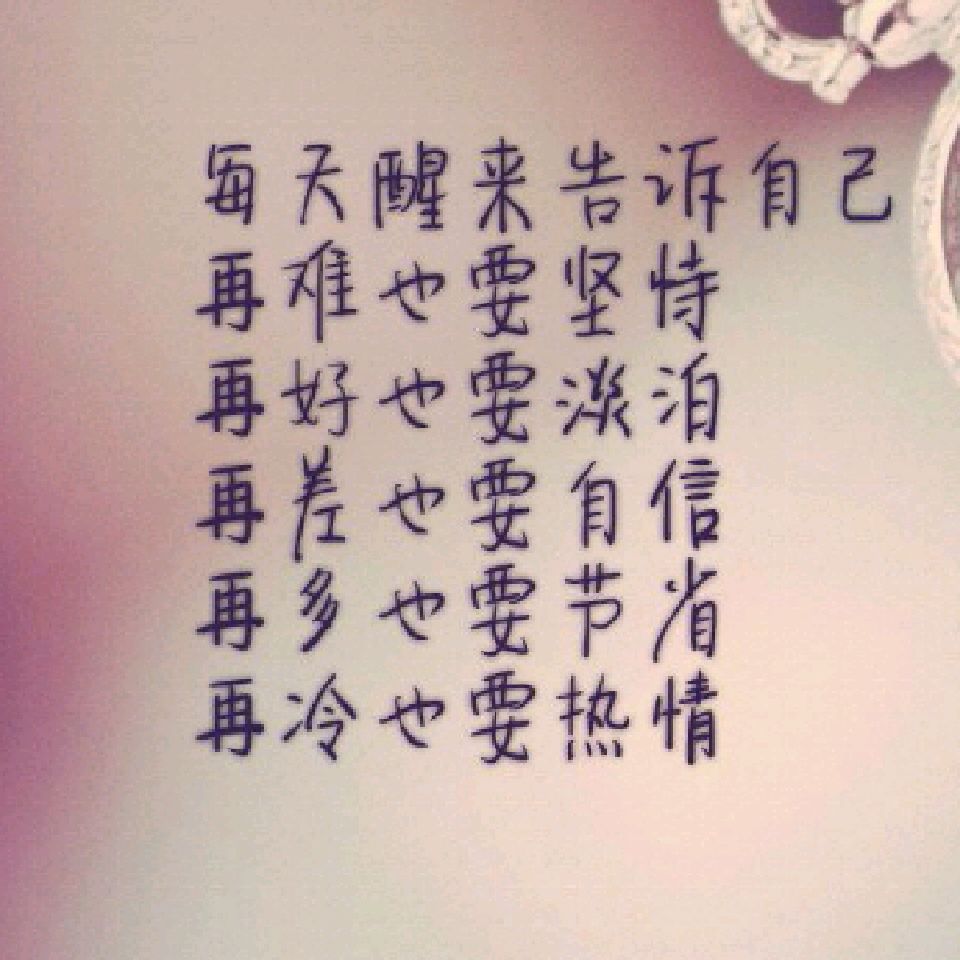 每天醒来告诉自己
再难也要坚恃
再好也要淡泊
再差也要自信
再多也要节省
再冷也要热情